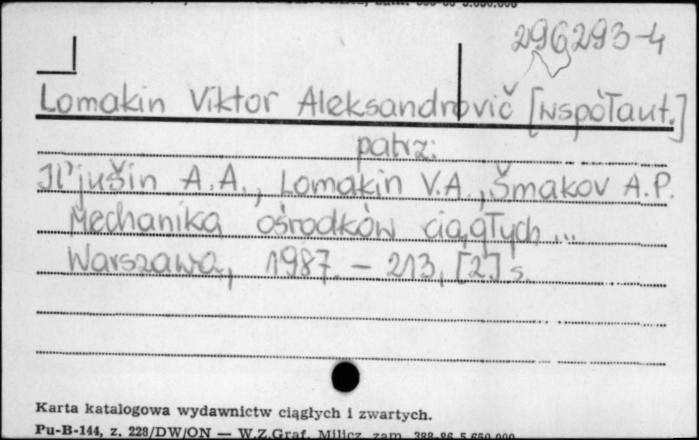 296293-4
Lomakin Viktor Aleksandrovič [współaut.]
patrz:
Il'jušin A.A., Lomakin V.A., Šmakov A.P.
Mechanika ośrodków ciągłych ...
Warszawa, 1987. – 213, [2] s.
Karta katalogowa wydawnictw ciągłych i zwartych.
Pu-B-144, z. 228/DW/ON — W.Z.Graf. Milicz, zam. 388-86 5.650.000